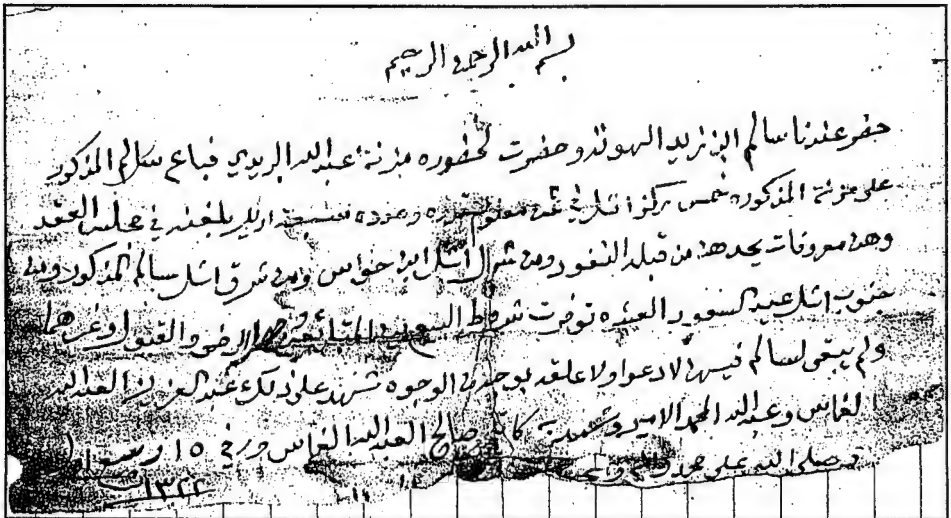 بسم الله الرحمن الرحيم
حضر عندنا سالم ابن زيد الهوند وحضرت لحضوره مزنة عبد الله الربدي فباع سالم المذكور
على مزنة المذكوره خمس ركز اثل في ثمن معلوم قدره وعدده سبعة اريل بلغنه في مجلس العقد
وهن معروفات يحدهن من قبله النفود ومن شمال اثل ابن حواس ومن شرق اثل سالم المذكور ومن
جنوب اثل عبد السعود العبره توفرت شروط البيع من المتبائعين الارضو والقبول وغرهما
ولم يبقى لسالم فيهن لا دعوا ولا علقه بوجه من الوجوه شهد على ذلك عبد العزيز العبد الله
الغماس وعبد الله المحمد الامير وشهد به كاتبه صالح العبد الله الغماس ورخ في ١٥
وصلى الله على محمد واله
١٣٢٢